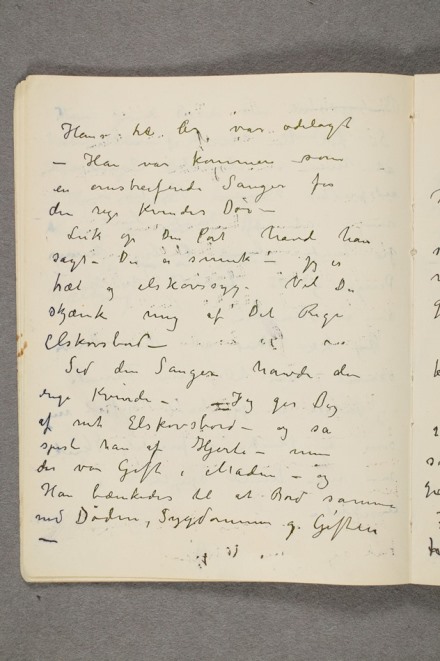 Hans liv var ødelagt
— Han var kommen som
en omstreifende Sanger for
den rige Kvindes Dør —
Luk op Din Port havd han
sagt. Du er smuk — jeg er
træt og elskovssyg. Vil Du
skjænk mig af Det Rige
Elskovsbord —
Sid den Sanger havde den
rige Kvinde — Jeg gir Dig
af mit Elskovsbord — og så
spist han af Hjerte — men
der var Gift i Maden — og
Han bænkedes til et Bord sammen
med Døden, Sygdommen og Giften
—